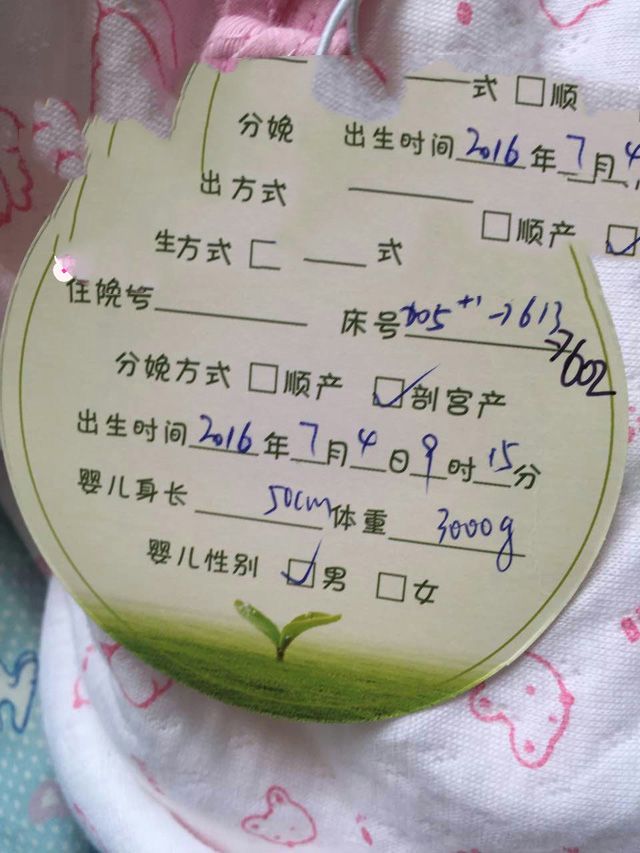 式 □顺
分娩 出生时间2016年7月4
出方式
□顺产 ☑
生方式 式
住院号 床号705+1→613
→602
分娩方式 □顺产 ☑剖宫产
出生时间2016年7月4日9时15分
婴儿身长50cm体重3000g
婴儿性别 ☑男 □女